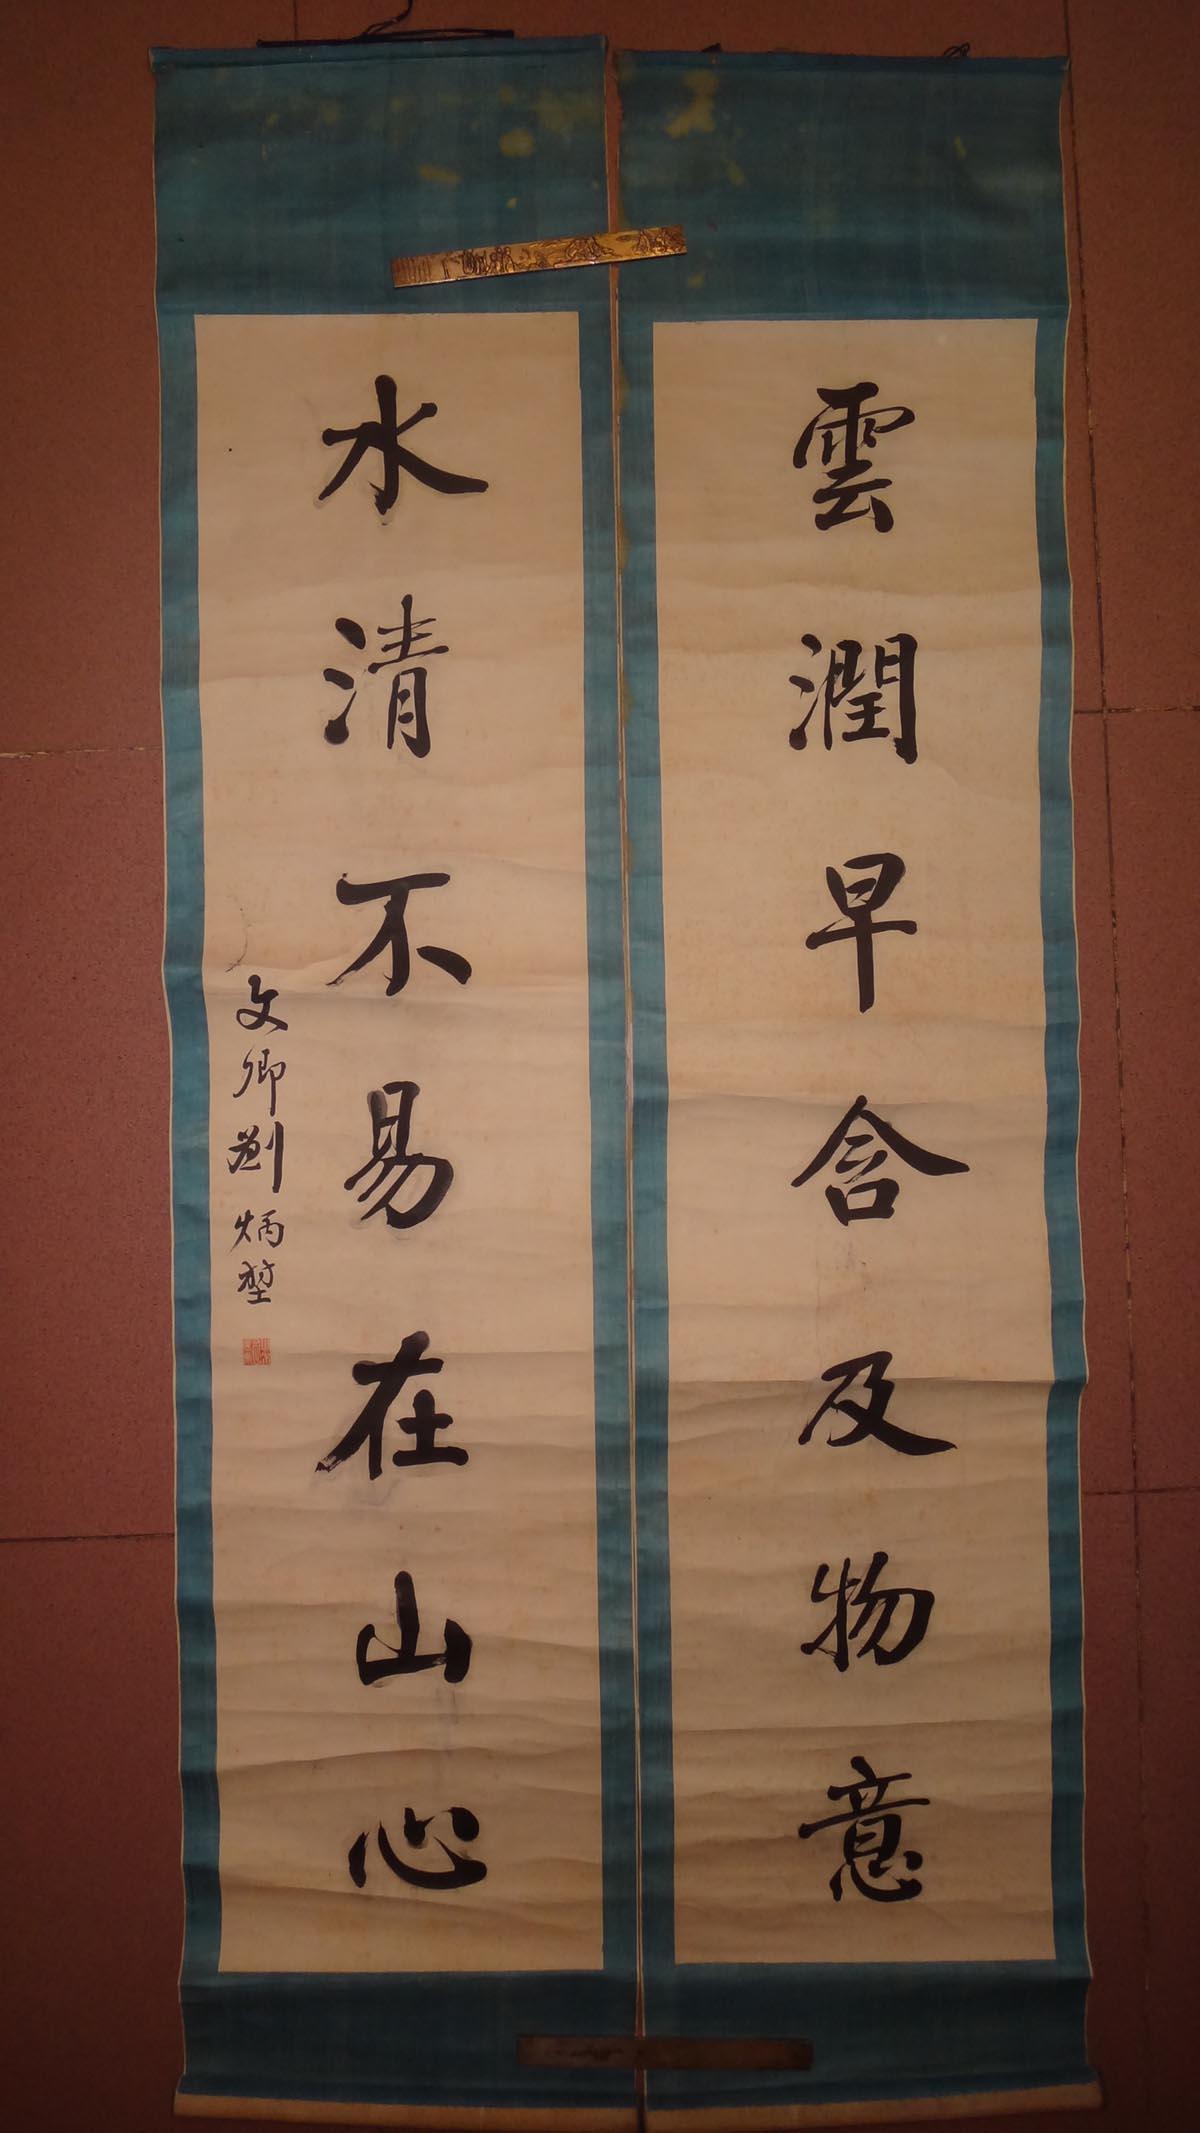 雲潤早含及物意
水清不易在山心
文卿劉炳堃